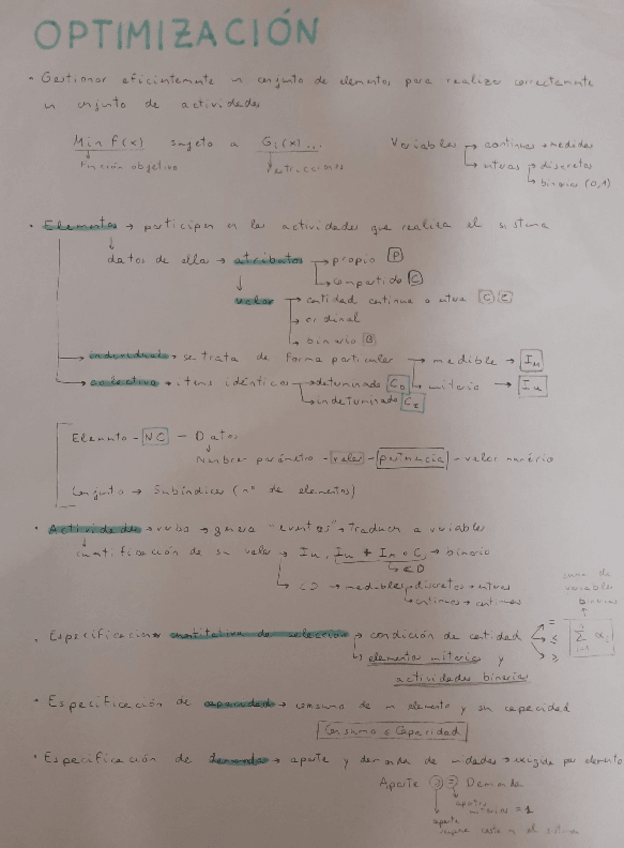 OPTIMIZACIÓN
· Gestionar eficientemente un conjunto de elementos para realizar correctamente
un conjunto de actividades
Min F(x) sujeto a Gi(x)...
Función objetivo
restricciones
Variables → continuas → medidas
→ enteras → discretas
→ binarias (0,1)
· Elementos → participan en las actividades que realiza el sistema
datos de ella → atributos → propio P
→ compartido C
valor → cantidad continua o entera C E
→ ordinal
→ binario B
→ individual → se trata de forma particular → medible → IM
→ colectivo → items idénticos → determinado CD → unitario → IU
→ indeterminado CI
Elemento - NC - Datos
Nombrar parámetro - valor - pertenencia - valor numérico
Conjunto → Subíndices (nº de elementos)
· Actividades → verbo → genera "eventos" → traducen a variables
cuantificación de su valor → → binario
→ CD
→ CD → medibles → discretos → enteros
→ continuos → continuas
suma de
variables
binarias
· Especificaciones cuantitativa de selección → condición de cantidad = ≤ ≥
→ elementos unitarios y
actividades binarias
· Especificación de capacidad → consumo de un elemento y su capacidad
Consumo ≤ Capacidad
· Especificación de demanda → aporte y demanda de unidades → exigida por elemento
Aporte ≥ = Demanda
aportes
unitarios = 1
aporte
supone coste en el sistema